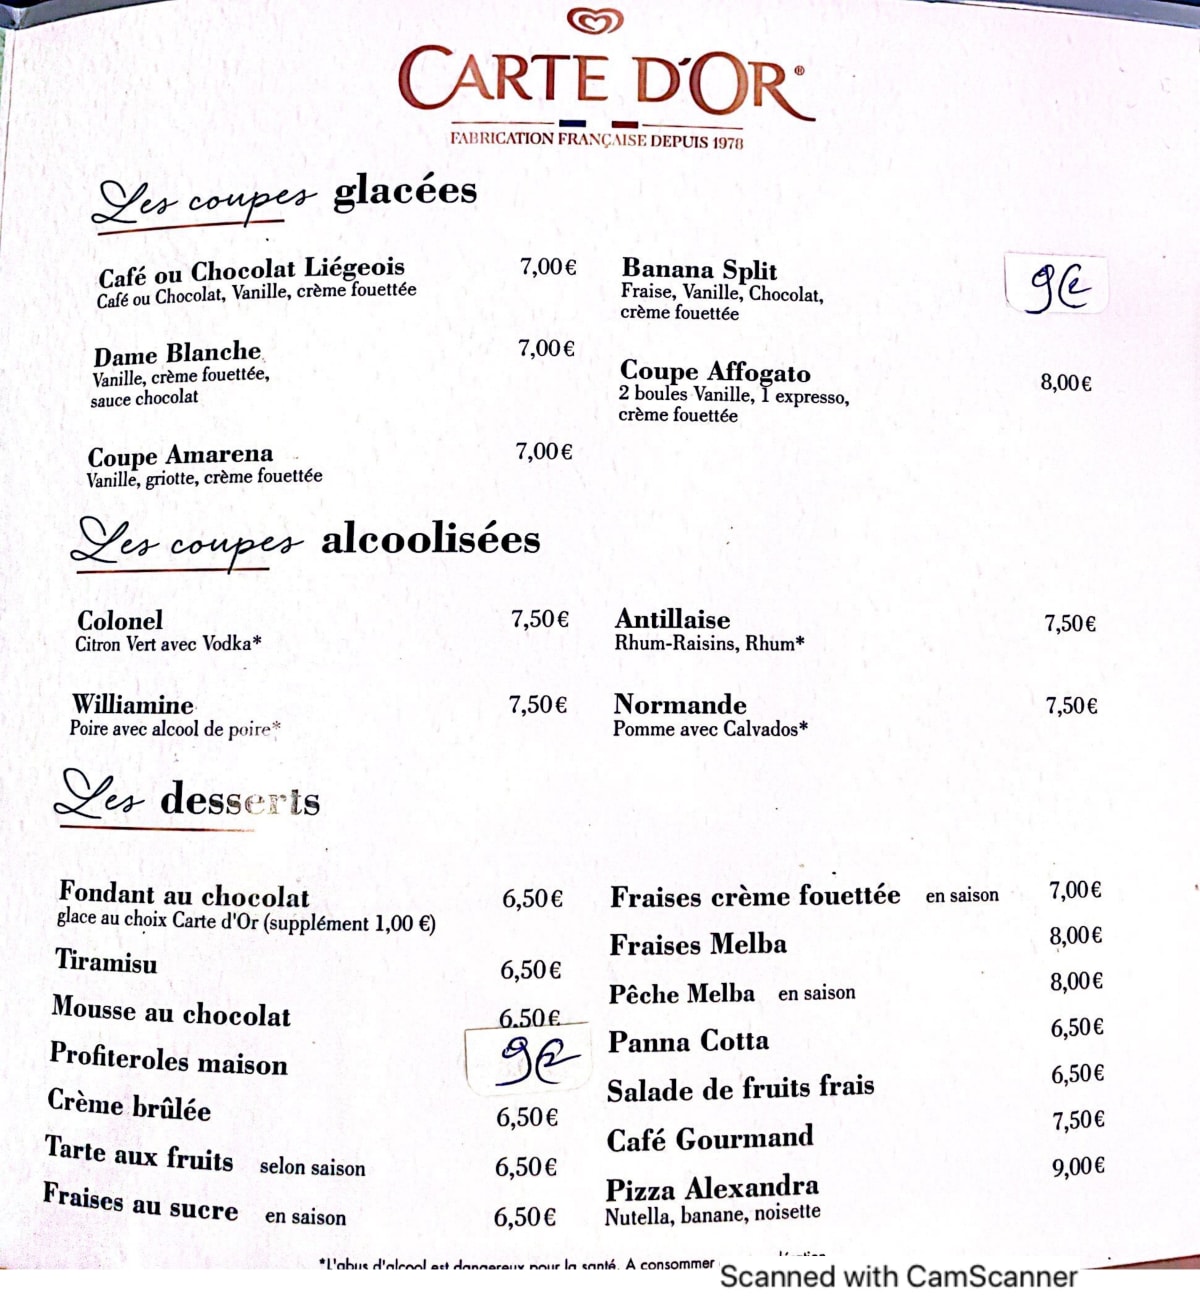 CARTE D'OR®
FABRICATION FRANÇAISE DEPUIS 1978
Les coupes glacées
Café ou Chocolat Liégeois 7,00€
Café ou Chocolat, Vanille, crème fouettée
Dame Blanche 7,00€
Vanille, crème fouettée,
sauce chocolat
Coupe Amarena 7,00€
Vanille, griotte, crème fouettée
Banana Split 9€
Fraise, Vanille, Chocolat,
crème fouettée
Coupe Affogato 8,00€
2 boules Vanille, 1 expresso,
crème fouettée
Les coupes alcoolisées
Colonel 7,50€
Citron Vert avec Vodka*
Williamine 7,50€
Poire avec alcool de poire*
Antillaise 7,50€
Rhum-Raisins, Rhum*
Normande 7,50€
Pomme avec Calvados*
Les desserts
Fondant au chocolat 6,50€
glace au choix Carte d'Or (supplément 1,00 €)
Tiramisu 6,50€
Mousse au chocolat 6,50€
Profiteroles maison 9€
Crème brûlée 6,50€
Tarte aux fruits selon saison 6,50€
Fraises au sucre en saison 6,50€
Fraises crème fouettée en saison 7,00€
Fraises Melba 8,00€
Pêche Melba en saison 8,00€
Panna Cotta 6,50€
Salade de fruits frais 6,50€
Café Gourmand 7,50€
Pizza Alexandra 9,00€
Nutella, banane, noisette
*L'abus d'alcool est dangereux pour la santé. A consommer
Scanned with CamScanner